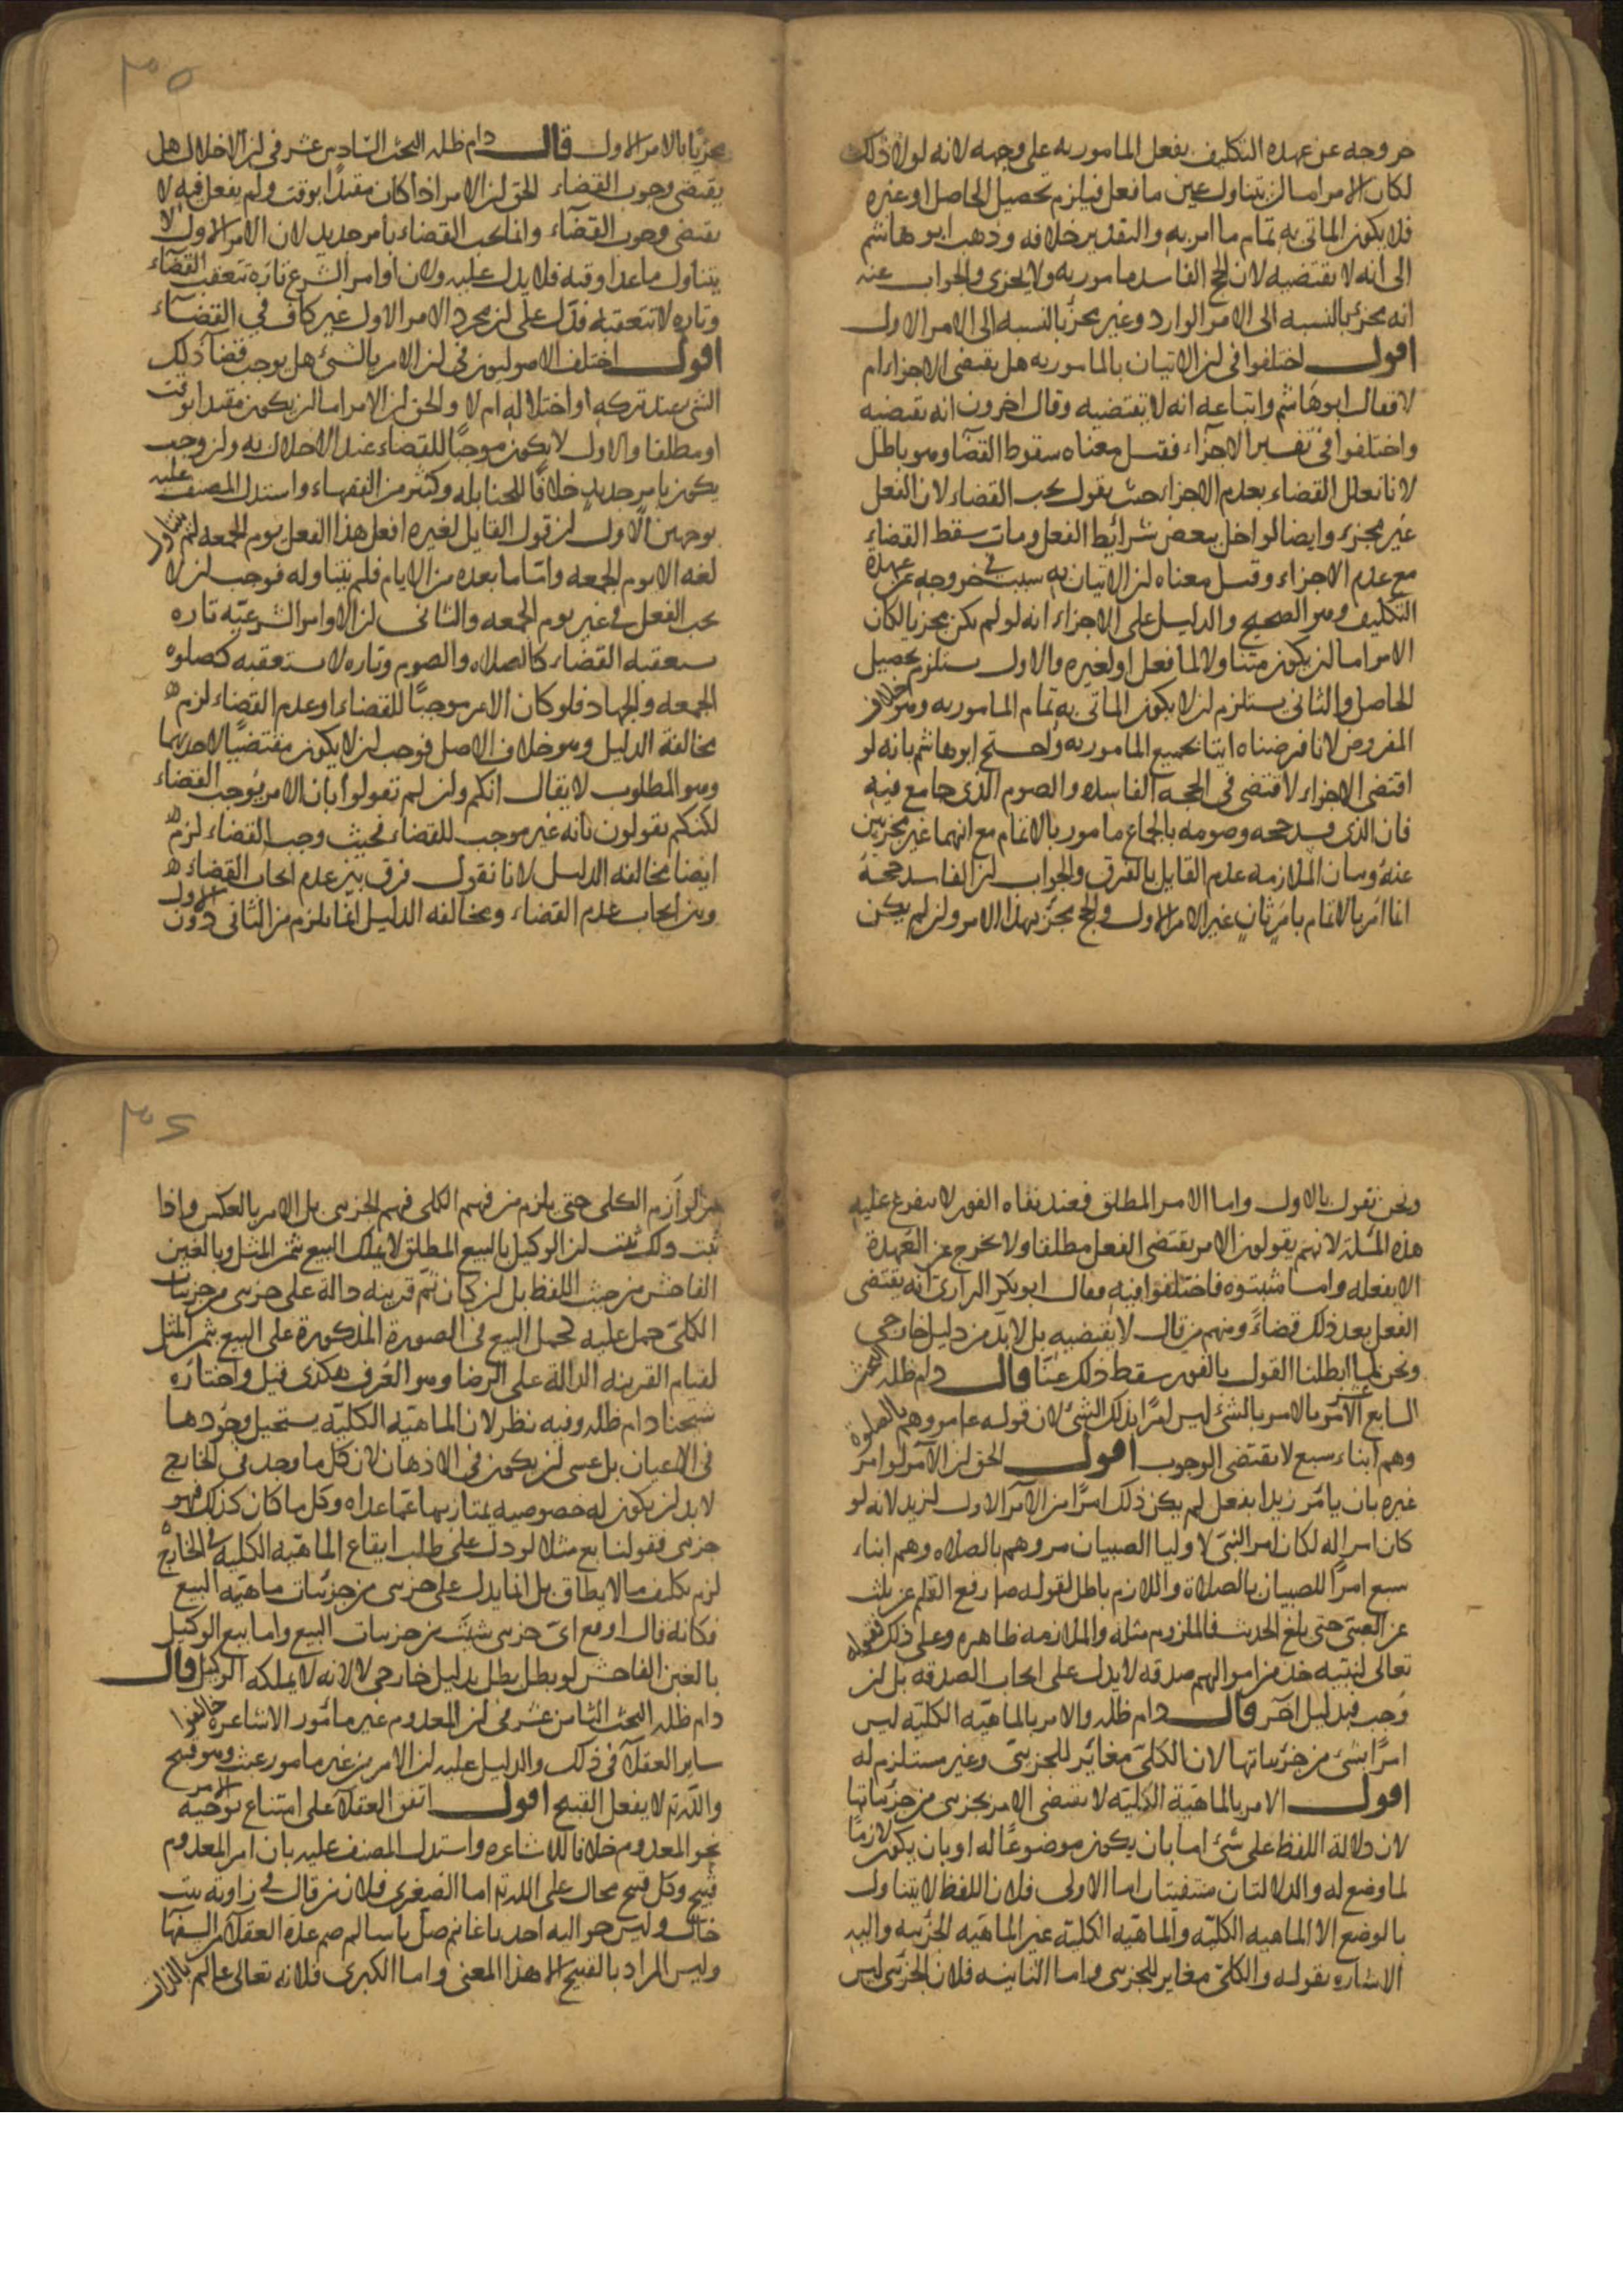 خروجه عن عهده التكليف بفعل المامور به على وجهه لانه لولا ذلك
لكان الامر اما ان يتناول عين ما فعل فيلزم تحصيل الحاصل او غيره
فلا يكون الماتى به تمام ما امر به والتقدير خلافه وذهب ابو هاشم
الى انه لا يقتضيه لان الحج الفاسد مامور به ولا يجزى والجواب عنه
انه مجزئ بالنسبه الى الامر الوارد وغير مجز بالنسبه الى الامر الاول
اقول اختلفوا فى ان الاتيان بالمامور به هل يقتضى الاجزاء ام
لا فقال ابو هاشم واتباعه انه لا يقتضيه وقال اخرون انه يقتضيه
واختلفوا فى تفسير الاجزاء فقيل معناه سقوط القضا وهو باطل
لانا نعلل القضاء بعدم الاجزاء حيث نقول يجب القضاء لان الفعل
غير مجزء وايضا لو اخل ببعض شرائط الفعل ومات سقط القضاء
مع عدم الاجزاء وقيل معناه ان الاتيان به سبب فى خروجه عن عهدة
التكليف وهو الصحيح والدليل على الاجزاء انه لو لم يكن مجزيا لكان
الامر اما ان يكون متناولا لما فعل او لغيره والاول يستلزم تحصيل
الحاصل والثانى يستلزم ان لا يكون الماتى به تمام المامور به وهو خلاف
المفروض لانا فرضناه اتيا بجميع المامور به واحتج ابو هاشم بانه لو
اقتضى الاجزاء لاقتضى فى الحجه الفاسده والصوم الذى جامع فيه
فان الذى فسد حجه وصومه بالجماع مامور بالاتمام مع انهما غير مجزيين
عنه وبيان الملازمه عدم القايل بالفرق والجواب ان الفاسد حجه
انما امر بالاتمام بامر ثان غير الامر الاول والحج مجز بهذا الامر وان لم يكن
٣٥
مجزيا بالامر الاول قال دام ظله البحث السادس عشر فى ان الاخلال هل
يقتضى وجوب القضاء الحق ان الامر اذا كان مقيدا بوقت ولم يفعل فيه لا
يقتضى وجوب القضاء وانما يجب القضاء بامر جديد لان الامر الاول لا
يتناول ما عدا وقته فلا يدل عليه ولان اوامر الشرع تارة تتعقب القضاء
وتاره لا تتعقبه فدل على ان مجرد الامر الاول غير كاف فى القضاء
اقول اختلف الاصوليون فى ان الامر بالشئ هل يوجب قضا ذلك
الشئ عند تركه او اختلاله ام لا والحق ان الامر اما ان يكون مقيدا بوقت
او مطلقا والاول لا يكون موجبا للقضاء عند الاخلال به وان وجب
يكون بامر جديد خلافا للحنابله وكثير من الفقهاء واستدل المصنف عليه
بوجهين الاول ان قول القايل لغيره افعل هذا الفعل يوم الجمعه لم يتناول
لغه الا يوم الجمعه واما ما بعده من الايام فلم يتناوله فوجب ان لا
يجب الفعل فى غير يوم الجمعه والثانى ان الاوامر الشرعيه تاره
يستعقبه القضاء كالصلاه والصوم وتاره لا يستعقبه كصلوه
الجمعه والجهاد فلو كان الامر موجبا للقضاء او عدم القضاء لزم
مخالفة الدليل وهو خلاف الاصل فوجب ان لا يكون مقتضيا لاحديهما
وهو المطلوب لا يقال انكم وان لم تقولوا بان الامر يوجب القضاء
لكنكم تقولون بانه غير موجب للقضاء فحيث وجب القضاء لزم
ايضا مخالفه الدليل لانا نقول فرق بين عدم ايجاب القضاء
وبين ايجاب عدم القضاء ومخالفه الدليل انما يلزم من الثانى دون الاول
ونحن نقول بالاول واما الامر المطلق فعند نفاه الفور لا يتفرع عليه
هذه المسلة لانهم يقولون الامر يقتضى الفعل مطلقا ولا يخرج عن العهدة
الا بفعله واما مثبتوه فاختلفوا فيه فقال ابو بكر الرازى انه يقتضى
الفعل بعد ذلك قضاء ومنهم من قال لا يقتضيه بل لا بد من دليل خارجى
ونحن لما ابطلنا القول بالفور سقط ذلك عنا قال دام ظله البحث
السابع عشر الامر بالامر بالشئ ليس امرا بذلك الشئ لان قوله عا مروهم بالصلوة
وهم ابناء سبع لا يقتضى الوجوب اقول الحق ان الآمر لو امر
غيره بان يامر زيدا بفعل لم يكن ذلك امرا من الآمر الاول لزيد لانه لو
كان امرا له لكان امر النبى لاوليا الصبيان مروهم بالصلاه وهم ابناء
سبع امرا للصبيان بالصلاة واللازم باطل لقوله ص رفع القلم عن ثلث
عن الصبى حتى بلغ الحديث فالملزوم مثله والملازمه ظاهره وعلى ذلك قوله
تعالى لنبيه خذ من اموالهم صدقه لا يدل على ايجاب الصدقه بل ان
وجب فبدليل آخر قال دام ظله والامر بالماهيه الكليه ليس
امرا بشئ من جزئياتها لان الكلى مغائر للجزئى وغير مستلزم له
اقول الامر بالماهية الكليه لا يقتضى الامر بجزىى من جزئياتها
لان دلالة اللفظ على شئ اما بان يكون موضوعا له او بان يكون لازما
لما وضع له والدلالتان منتفيتان اما الاولى فلان اللفظ لا يتناول
بالوضع الا الماهيه الكليه والماهيه الكليه غير الماهيه الجزئيه واليه
الاشاره بقوله والكلى مغاير للجزىى واما الثانيه فلان الجزئى ليس
٣٦
من لوازم الكلى حتى يلزم من فهم الكلى فهم الجزىى بل الامر بالعكس واذا
ثبت ذلك ثبت ان الوكيل بالبيع المطلق لا يملك البيع بثمن المثل وبالغبن
الفاحش من حيث اللفظ بل ان كان ثم قرينه دالة على جزىى من جزىيات
الكلى حمل عليه كحمل البيع فى الصورة المذكورة على البيع بثمن المثل
لقيام القرينه الدالة على الرضا وهو العرف هكذى قيل واختاره
شيخنا دام ظله وفيه نظر لان الماهيه الكليه يستحيل وجودها
فى الاعيان بل عسى ان يكون فى الاذهان لان كل ما وجد فى الخارج
لا بد ان يكون له خصوصيه يمتاز بها عما عداه وكل ما كان كذلك فهو
جزىى فقولنا بع مثلا لو دل على طلب ايقاع الماهيه الكليه فى الخارج
لزم تكليف ما لا يطاق بل انما يدل على جزىى من جزئيات ماهيه البيع
فكانه قال اوقع اى جزىى شئت من جزىيات البيع واما بيع الوكيل
بالغبن الفاحش لو بطل بطل بدليل خارجى لا لانه لا يملكه الوكيل قال
دام ظله البحث الثامن عشر فى ان المعدوم غير مأمور الاشاعره خالفوا
ساير العقلا فى ذلك والدليل عليه ان الامر من غير مامور عبث وهو قبيح
والله تع لا يفعل القبيح اقول اتفق العقلا على امتناع توجيه الامر
نحو المعدوم خلافا للاشاعره واستدل المصنف عليه بان امر المعدوم
قبيح وكل قبيح محال على الله تع اما الصغرى فلان من قال فى زاوية بيت
خال وليس حواليه احد يا غانم صل يا سالم صم عده العقلا من السفها
وليس المراد بالقبيح الا هذا المعنى واما الكبرى فلانه تعالى عالم